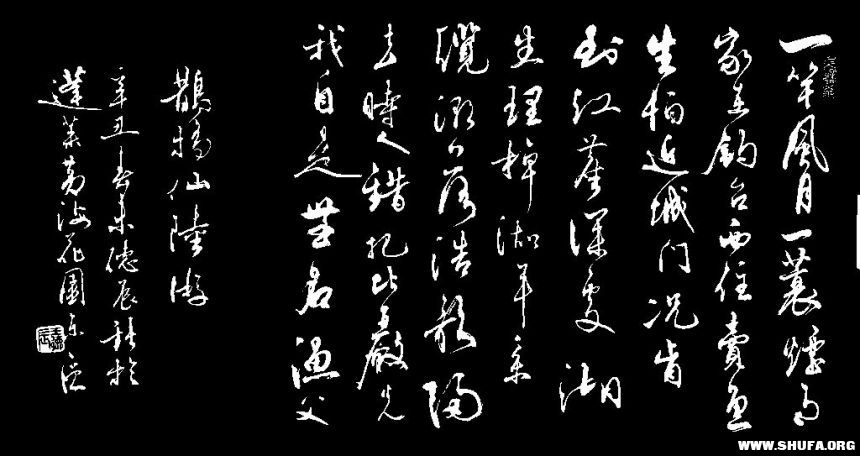 一竿風月一蓑煙雨
家在釣台西住賣魚
生怕近城門况肯
到紅塵深處潮
生理棹潮平系
纜潮落浩歌歸
去時人錯把比嚴光
我自是無名漁父
鵲橋仙陸游
辛丑春末德辰於
蓬萊黄海花園
WWW.SHUFA.ORG